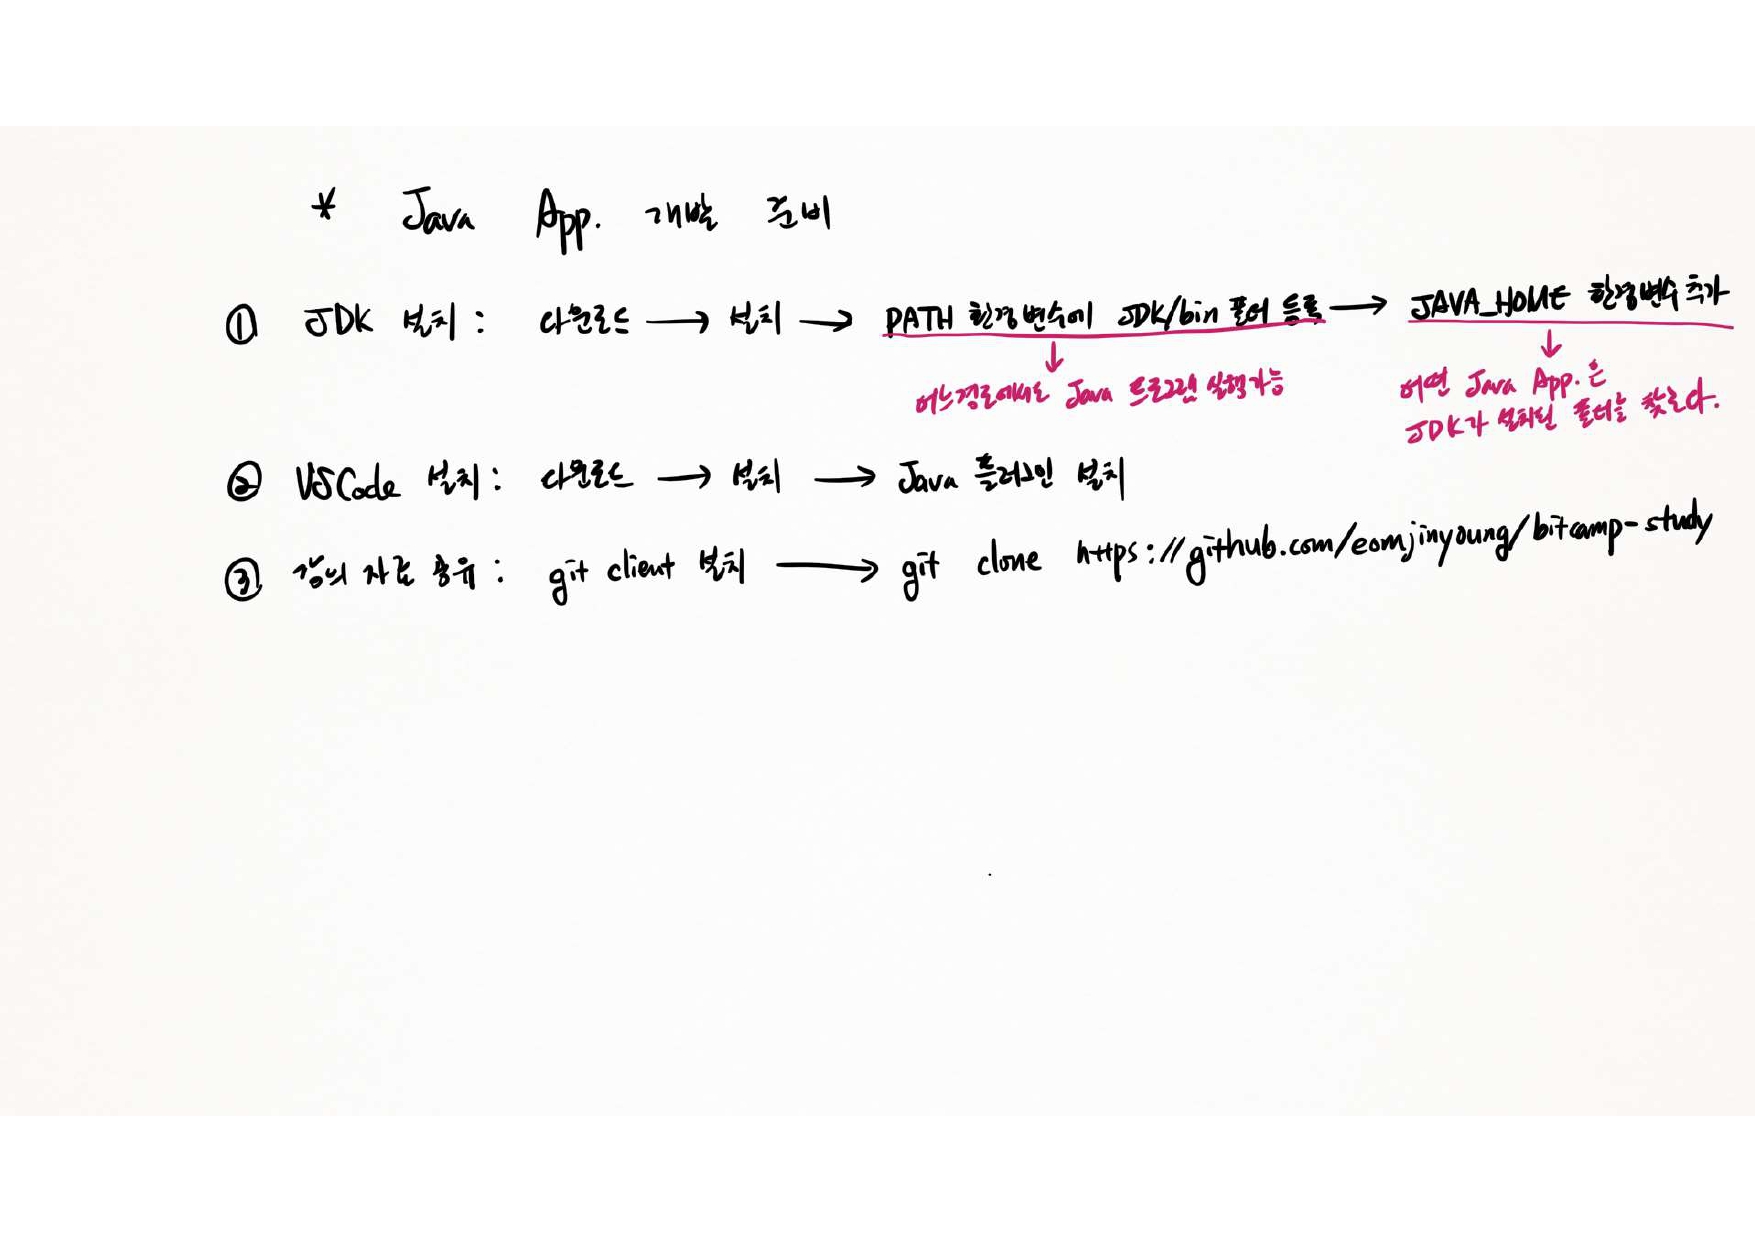 * Java App. 개발 준비
① JDK 설치 : 다운로드 → 설치 → PATH 환경변수에 JDK/bin 폴더 등록 → JAVA_HOME 환경변수 추가
↓ 어느 경로에서도 Java 프로그램 실행가능
↓ 어떤 Java App.은
JDK가 설치된 폴더를 찾는다.
② VSCode 설치 : 다운로드 → 설치 → Java 플러그인 설치
③ 강의 자료 공유 : git client 설치 → git clone https://github.com/eomjinyoung/bitcamp-study